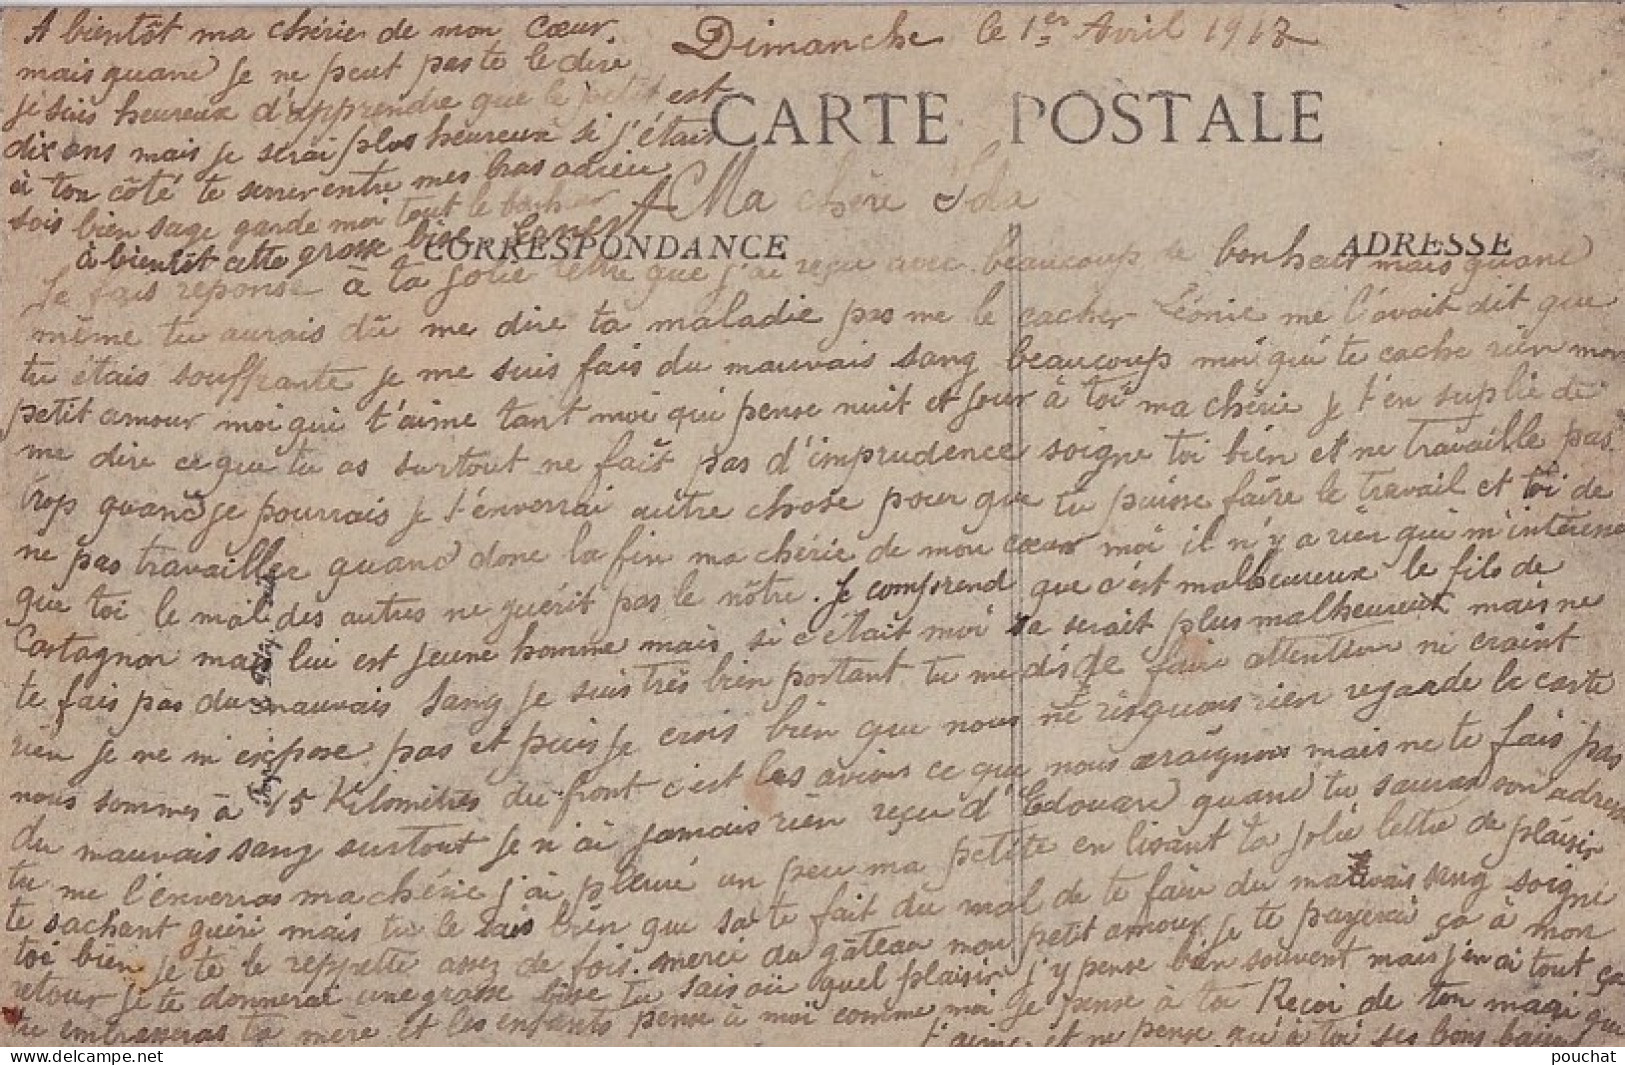 Dimanche le 1er Avril 1917
CARTE POSTALE
Ma chère Ida
CORRESPONDANCE
ADRESSE
Je fais reponse à ta jolie lettre que j'ai reçu avec beaucoup de bonheur mais quand
même tu aurais dû me dire ta maladie pas me le cacher Léonie me l'avait dit que
tu étais souffrante je me suis fais du mauvais sang beaucoup moi qui te cache rien mon
petit amour moi qui t'aime tant moi qui pense nuit et jour à toi ma chérie je t'en suplie de
me dire ce que tu as surtout ne fait pas d'imprudence soigne toi bien et ne travaille pas
trop quand je pourrais je t'enverrai autre chose pour que tu puisse faire le travail et toi de
ne pas travailler quand donc la fin ma chérie de mon cœur moi il n'y a rien qui m'intéresse
que toi le mal des autres ne guérit pas le nôtre. Je comprend que c'est malheureux le fils de
Castagnon mais lui est jeune homme mais si c'était moi sa serait plus malheureux mais ne
te fais pas du mauvais sang je suis très bien portant tu me dis de faire attention ni craint
rien je ne m'expose pas et puis je crois bien que nous ne risquons rien regarde la carte
nous sommes à 15 Kilomètres du front c'est les avions ce que nous craignons mais ne te fais pas
du mauvais sang surtout je n'ai jamais rien reçu d'Edouard quand tu sauras son adresse
tu me l'enverras ma chérie j'ai pleuré un peu ma petite en lisant ta jolie lettre de plaisir
te sachant guéri mais tu le sais bien que sa te fait du mal de te faire du mauvais sang soigne
toi bien je te le reppette assez de fois. merci du gâteau mon petit amour je te payerai ça à mon
retour je te donnerai une grosse bise tu sais où quel plaisir j'y pense bien souvent mais j'en ai tout ça
tu embrasseras ta mère et les enfants pense à moi comme moi je pense à toi Reçoi de ton mari que
t'aime et ne pense qu'à toi ses bons baisers
A bientôt ma chérie de mon cœur.
mais quand je ne peut pas te le dire
je suis heureux d'apprendre que le petit est
dix ans mais je serai plus heureux si j'étais
à ton côté te serrer entre mes bras adieu
sois bien sage garde moi tout le bonheur
à bientôt cette grosse bise Ernest